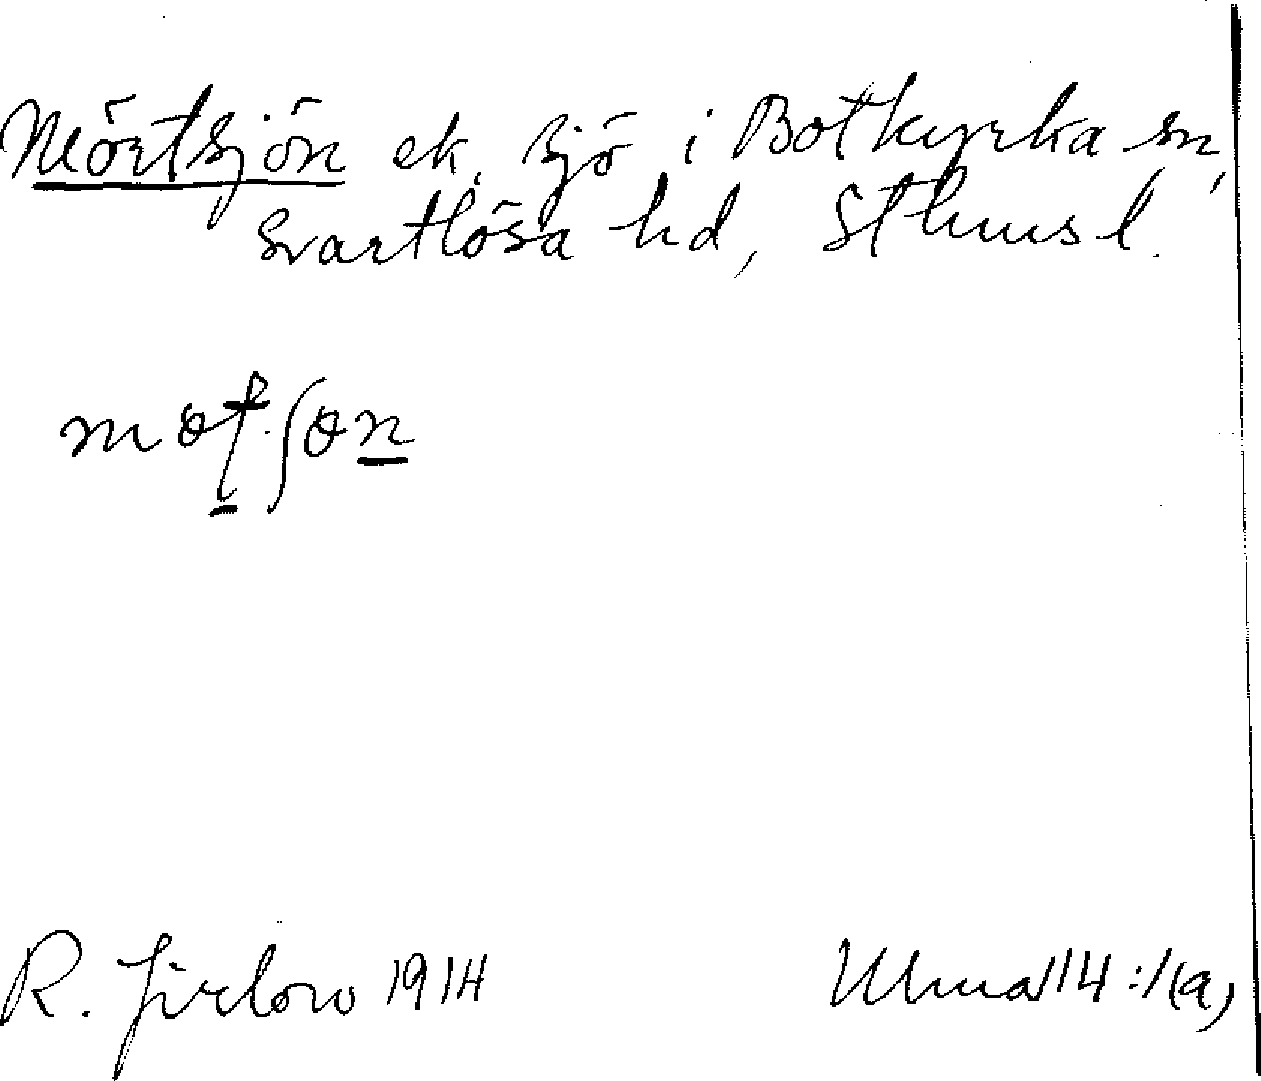 Mörtsjön ek, sjö i Botkyrka sn,
Svartlösa hd, Sthms l.
R. Jirlow 1914
Ulma 114:1(a)